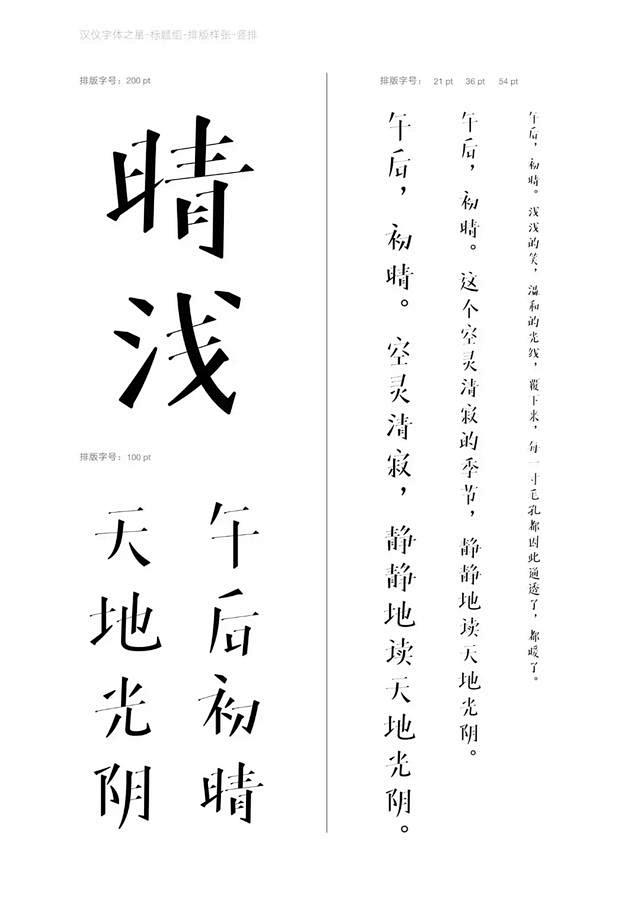 汉仪字体之星-标题组-排版样张-竖排
排版字号：200 pt
晴浅
排版字号：100 pt
午后初晴
天地光阴
排版字号： 21 pt 36 pt 54 pt
午后，初晴。浅浅的笑，温和的光线，覆下来，每一寸毛孔都因此通透了，都暖了。
午后，初晴。这个空灵清寂的季节，静静地读天地光阴。
午后，初晴。空灵清寂，静静地读天地光阴。